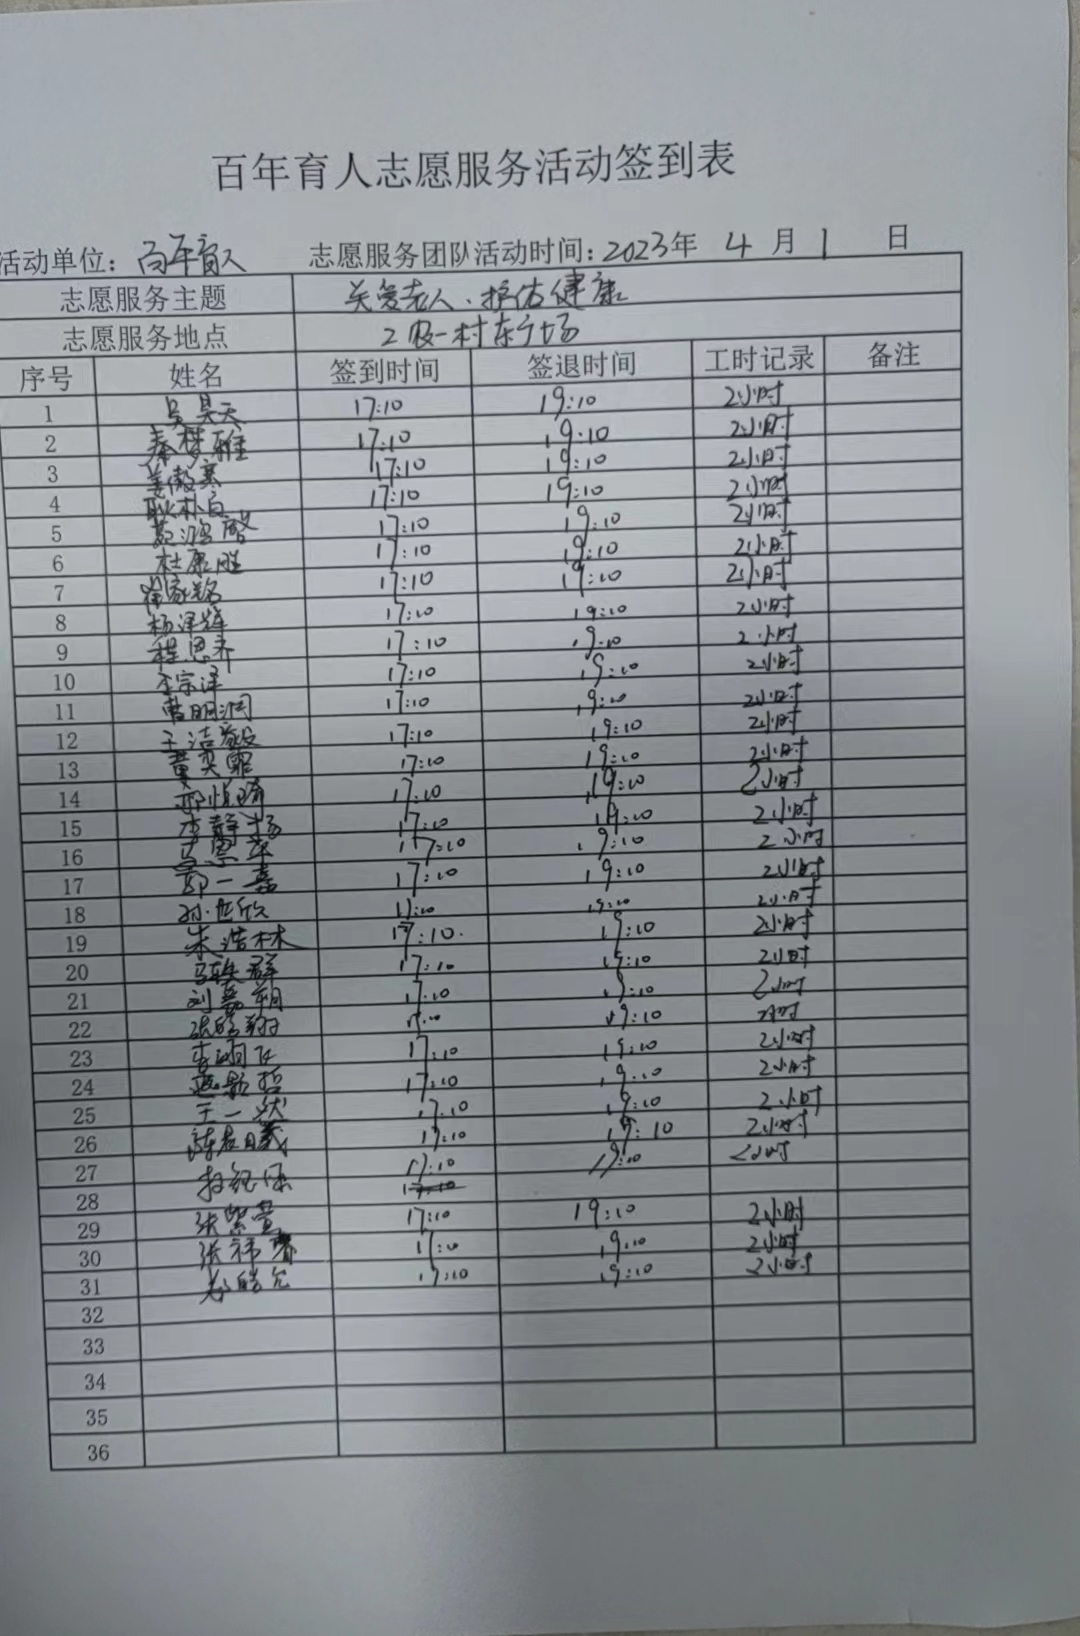 百年育人志愿服务活动签到表
活动单位：百年育人 志愿服务团队活动时间：2023年 4 月 1 日
志愿服务主题 关爱老人、护佑健康
志愿服务地点 村东广场
序号 姓名 签到时间 签退时间 工时记录 备注
1 吴昊天 17:10 19:10 2小时
2 秦梦雅 17:10 19:10 2小时
3 姜傲寒 17:10 19:10 2小时
4 耿朴 17:10 19:10 2小时
5 17:10 19:10 2小时
6 杜康胜 17:10 19:10 2小时
7 家铭 17:10 19:10 2小时
8 杨泽辉 17:10 19:10 2小时
9 程恩齐 17:10 19:10 2小时
10 李宗泽 17:10 19:10 2小时
11 曹明润 17:10 19:10 2小时
12 王洁 17:10 19:10 2小时
13 黄奕霏 17:10 19:10 2小时
14 17:10 19:10 2小时
15 李静扬 17:10 19:10 2小时
16 17:10 19:10 2小时
17 郭一嘉 17:10 19:10 2小时
18 孙欣 17:10 19:10 2小时
19 朱浩林 17:10. 19:10 2小时
20 马轶群 17:10 19:10 2小时
21 刘嘉翔 17:10 19:10 2小时
22 张皓翔 17:10 19:10 2小时
23 李 17:10 19:10 2小时
24 哲 17:10 19:10 2小时
25 王一然 17:10 19:10 2小时
26 陈 曦 17:10 19:10 2小时
27 17:10 19:10 2小时
28 17:10
29 张紫萱 17:10 19:10 2小时
30 张祎馨 17:10 19:10 2小时
31 17:10 19:10 2小时
32
33
34
35
36